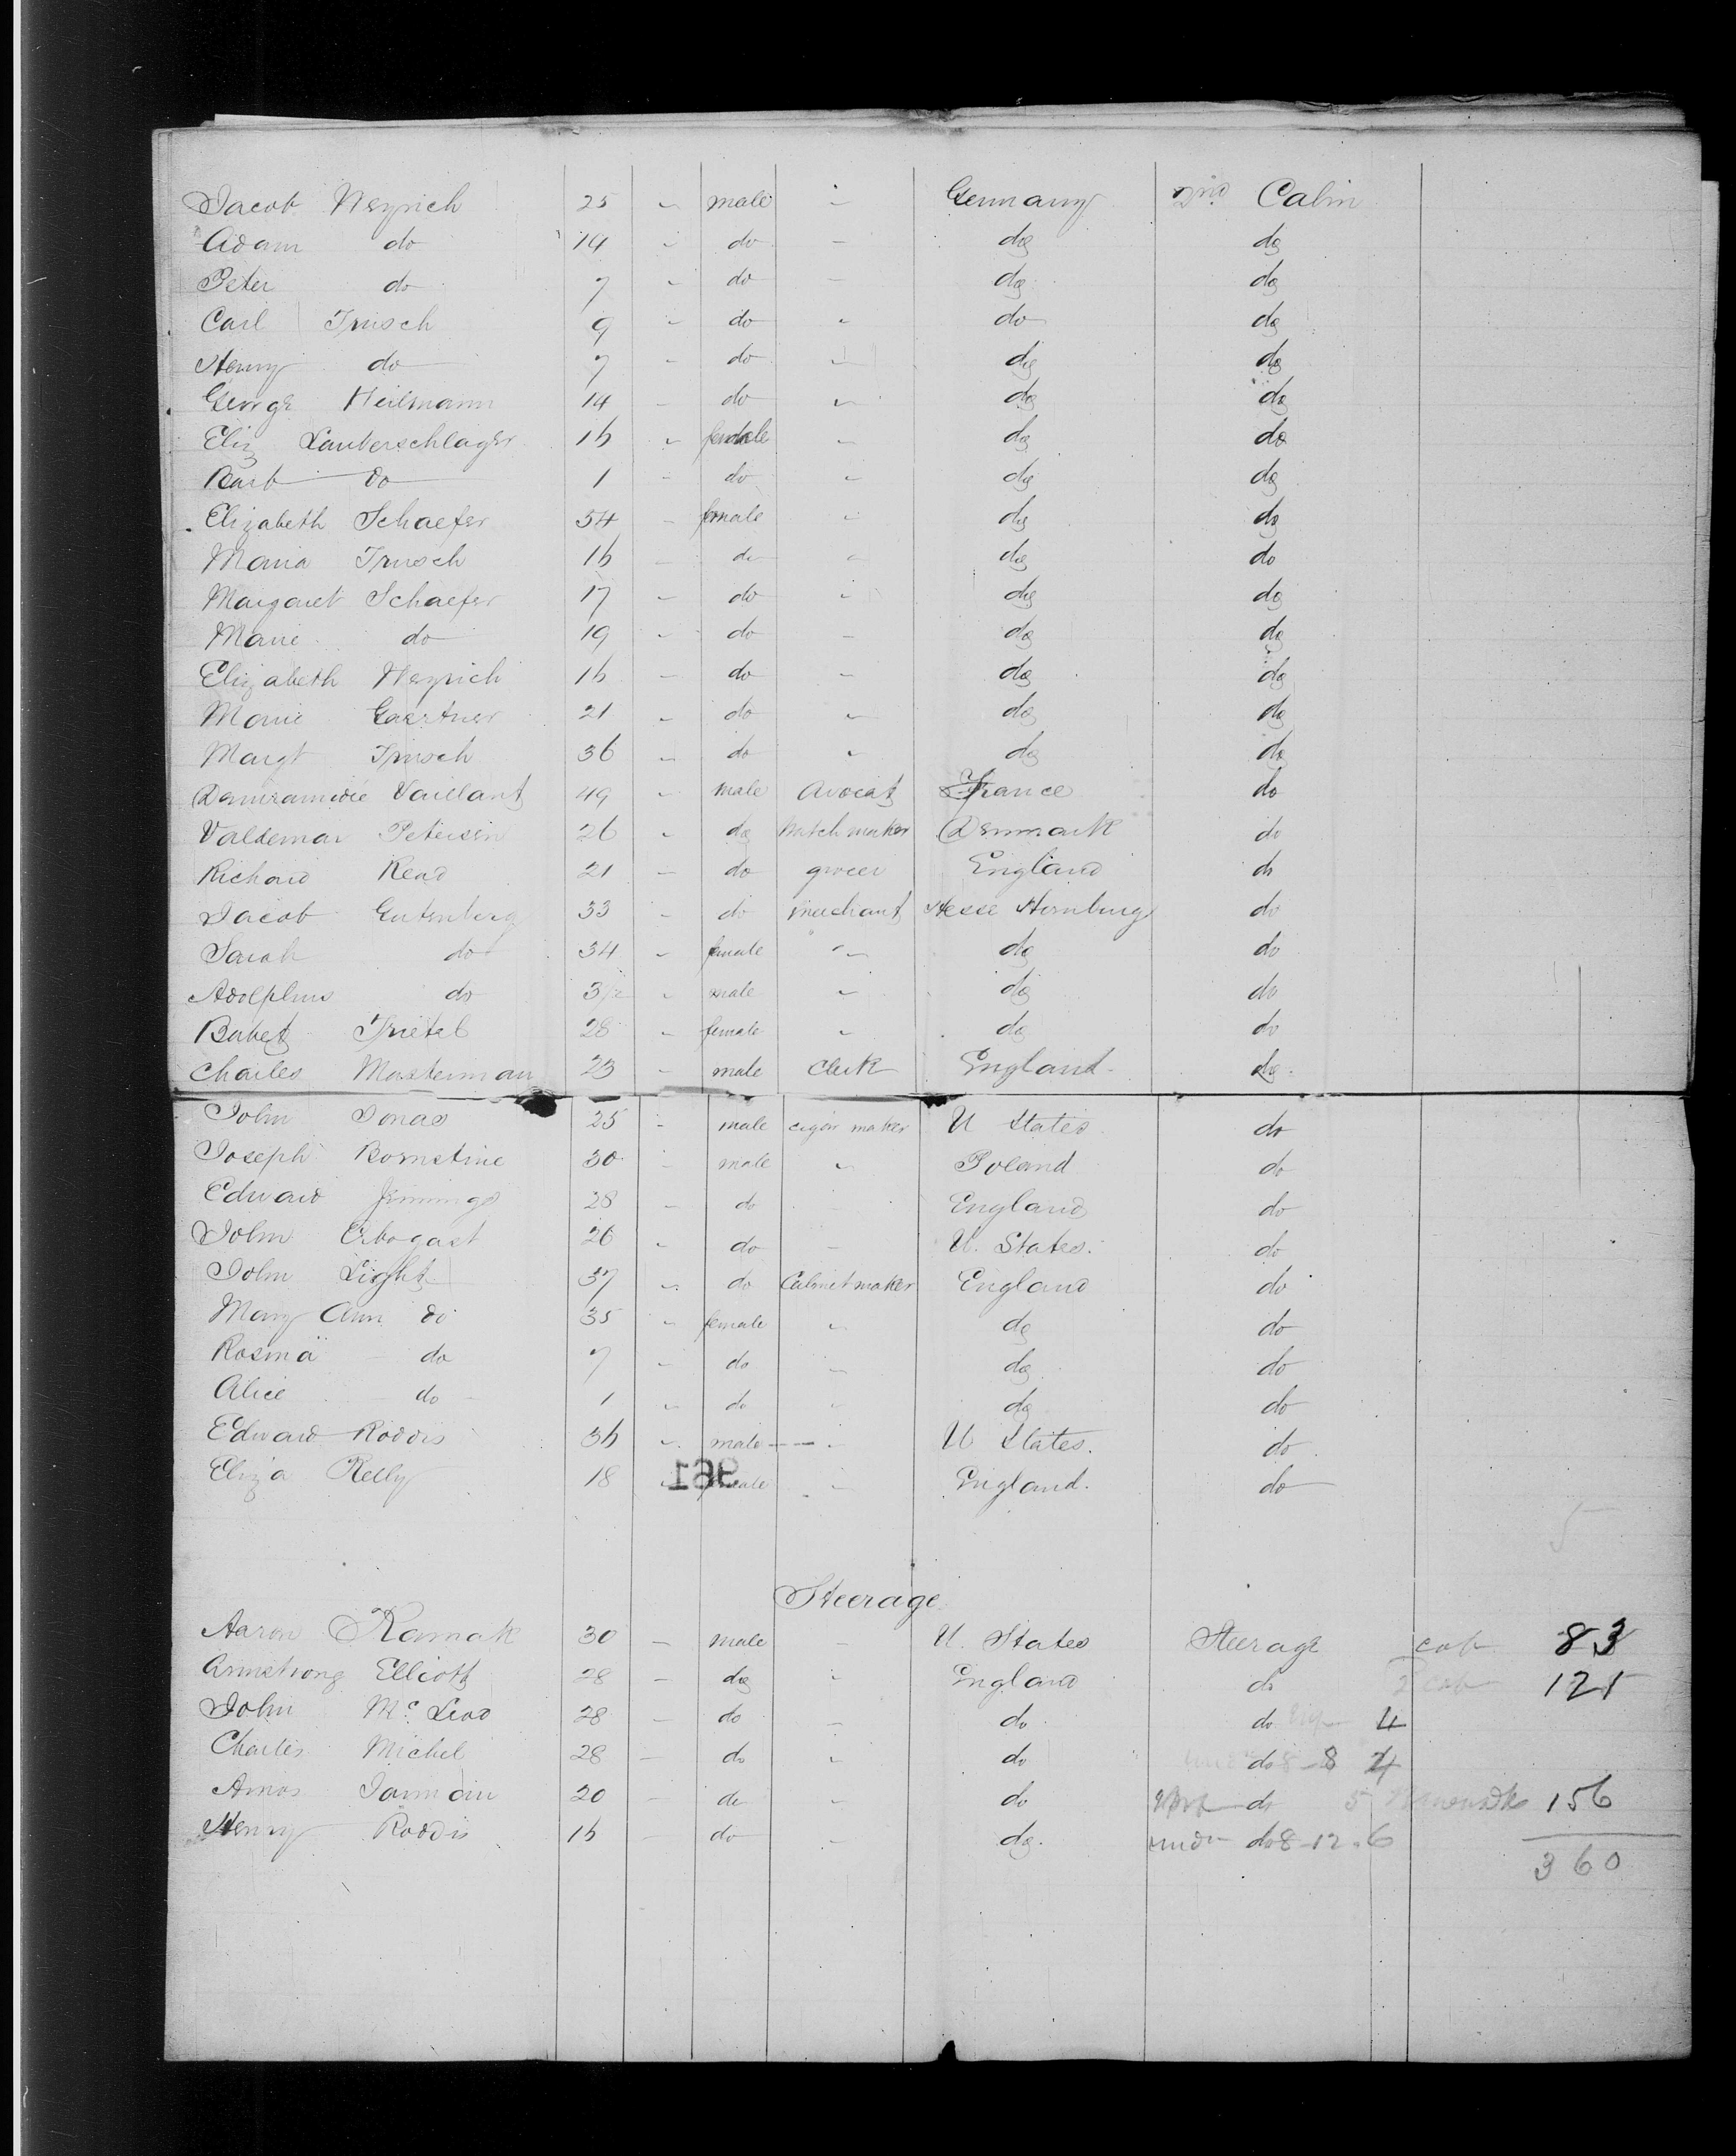 Jacob Weyrich 25 " male " Germany 2nd Cabin
Adam do 19 " do " do do
Peter do 7 " do " do do
Carl Trusch 9 " do " do do
Henry do 7 " do " do do
George Heilmann 14 " do " do do
Eliz Lauterschlager 16 " female " do do
Barb do 1 " do " do do
Elizabeth Schaefer 54 " female " do do
Maria Trusch 16 " do " do do
Margaret Schaefer 17 " do " do do
Marie do 19 " do " do do
Elizabeth Weyrich 16 " do " do do
Marie Gaertner 21 " do " do do
Margt Trusch 36 " do " do do
Vaillant 49 " male Avocat France do
Valdemar Petersen 26 " do Watch maker Denmark do
Richard Read 21 " do grocer England do
Jacob Gutenberg 33 " do merchant Hesse Homburg do
Sarah do 34 " female " do do
Adolphus do 3½ " male " do do
Babet Trietel 28 " female " do do
Charles Masterman 23 " male Clerk England do
John Jonas 25 " male cigar maker U States do
Joseph Bornstine 30 " male " Poland do
Edward Jennings 28 " do " England do
John Arbogast 26 " do " U. States. do
John Light 37 " do Cabinet maker England do
Mary Ann do 35 " female " do do
Rosina do 7 " do " do do
Alice do 1 " do " do do
Edward Roddis 36 " male " U States. do
Eliza Relly 18 " female " England. do
196
5
Steerage
Aaron Ramak 30 " male " U. States Steerage cab 83
Armstrong Elliott 28 " do " England do 2 cab 121
John Mc Leod 28 " do " do do 4
Charles Michel 28 " do " do under do 8 - 8 4
Amos Jarman 20 " do " do do 5 156
Henry Roddis 16 " do " do. under do 8 - 12 . 6
360